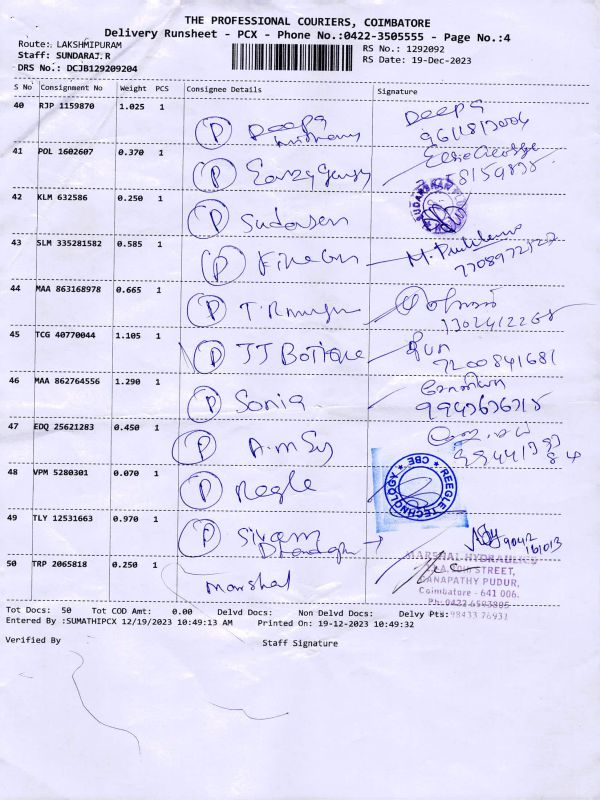 THE PROFESSIONAL COURIERS, COIMBATORE
Delivery Runsheet - PCX - Phone No.:0422-3505555 - Page No.:4
Route: LAKSHMIPURAM
RS No.: 1292092
Staff: SUNDARAJ.R
RS Date: 19-Dec-2023
DRS No.: DCJB129209204
S No Consignment No Weight PCS Consignee Details Signature
40 RJP 1159870 1.025 1
P Deepa Deepa
41 POL 1602607 0.370 1
P
42 KLM 632586 0.250 1
P Sudarsen
43 SLM 335281582 0.585 1
P
44 MAA 863168978 0.665 1
P
45 TCG 40770044 1.105 1
P JJ Botique
7200841681
46 MAA 862764556 1.290 1
P Sonia
47 EDQ 25621283 0.450 1
P
48 VPM 5280301 0.070 1
P Regle REEGLE TECHNOLOGY CBE
49 TLY 12531663 0.970 1
P Sivam
50 TRP 2065818 0.250 1
Marshal MARSHAL HYDRAULICS
STREET,
GANAPATHY PUDUR,
Coimbatore - 641 006.
Ph: 0422-6503805
98433 76931
Tot Docs: 50 Tot COD Amt: 0.00 Delvd Docs: Non Delvd Docs: Delvy Pts:
Entered By :SUMATHIPCX 12/19/2023 10:49:13 AM Printed On: 19-12-2023 10:49:32
Verified By Staff Signature